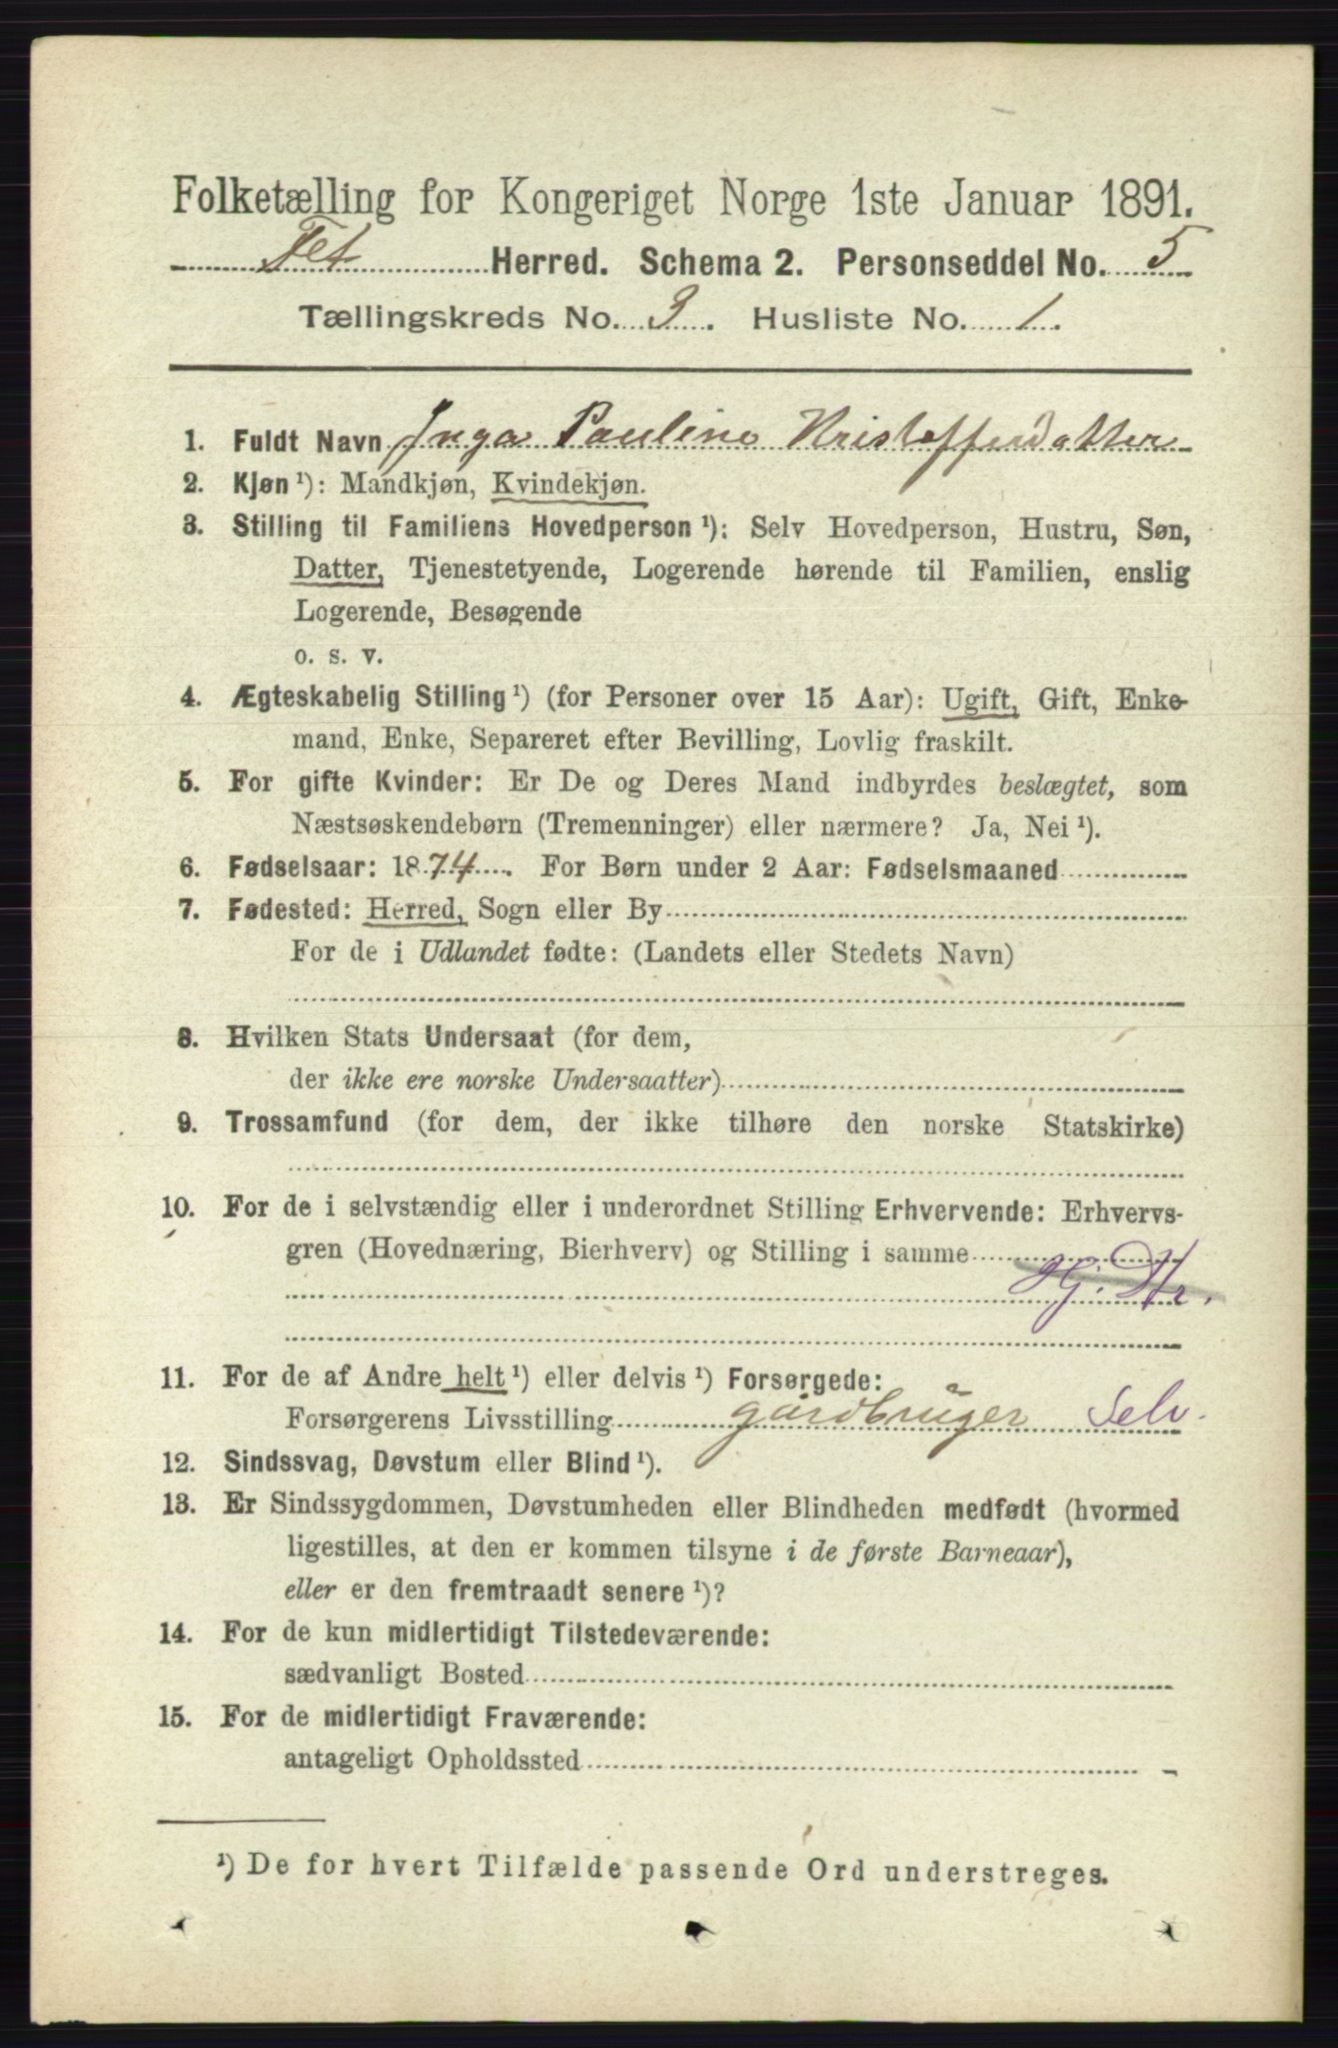 Folketælling for Kongeriget Norge 1ste Januar 1891.
Fet Herred. Schema 2. Personseddel No. 5
Tællingskreds No. 3. Husliste No. 1.
1. Fuldt Navn Inga Pauline Kristofferdatter
2. Kjøn ¹): Mandkjøn, Kvindekjøn.
3. Stilling til Familiens Hovedperson ¹): Selv Hovedperson, Hustru, Søn,
Datter, Tjenestetyende, Logerende hørende til Familien, enslig
Logerende, Besøgende
o. s. v.
4. Ægteskabelig Stilling ¹) (for Personer over 15 Aar): Ugift, Gift, Enke-
mand, Enke, Separeret efter Bevilling, Lovlig fraskilt.
5. For gifte Kvinder: Er De og Deres Mand indbyrdes beslægtet, som
Næstsøskendebørn (Tremenninger) eller nærmere? Ja, Nei ¹).
6. Fødselsaar: 1874. For Børn under 2 Aar: Fødselsmaaned
7. Fødested: Herred, Sogn eller By
For de i Udlandet fødte: (Landets eller Stedets Navn)
8. Hvilken Stats Undersaat (for dem,
der ikke ere norske Undersaatter)
9. Trossamfund (for dem, der ikke tilhøre den norske Statskirke)
10. For de i selvstændig eller i underordnet Stilling Erhvervende: Erhvervs-
gren (Hovednæring, Bierhverv) og Stilling i samme
11. For de af Andre helt ¹) eller delvis ¹) Forsørgede:
Forsørgerens Livsstilling gårdbruger Selv.
12. Sindssvag, Døvstum eller Blind ¹).
13. Er Sindssygdommen, Døvstumheden eller Blindheden medfødt (hvormed
ligestilles, at den er kommen tilsyne i de første Barneaar),
eller er den fremtraadt senere ¹)?
14. For de kun midlertidigt Tilstedeværende:
sædvanligt Bosted
15. For de midlertidigt Fraværende:
antageligt Opholdssted
¹) De for hvert Tilfælde passende Ord understreges.